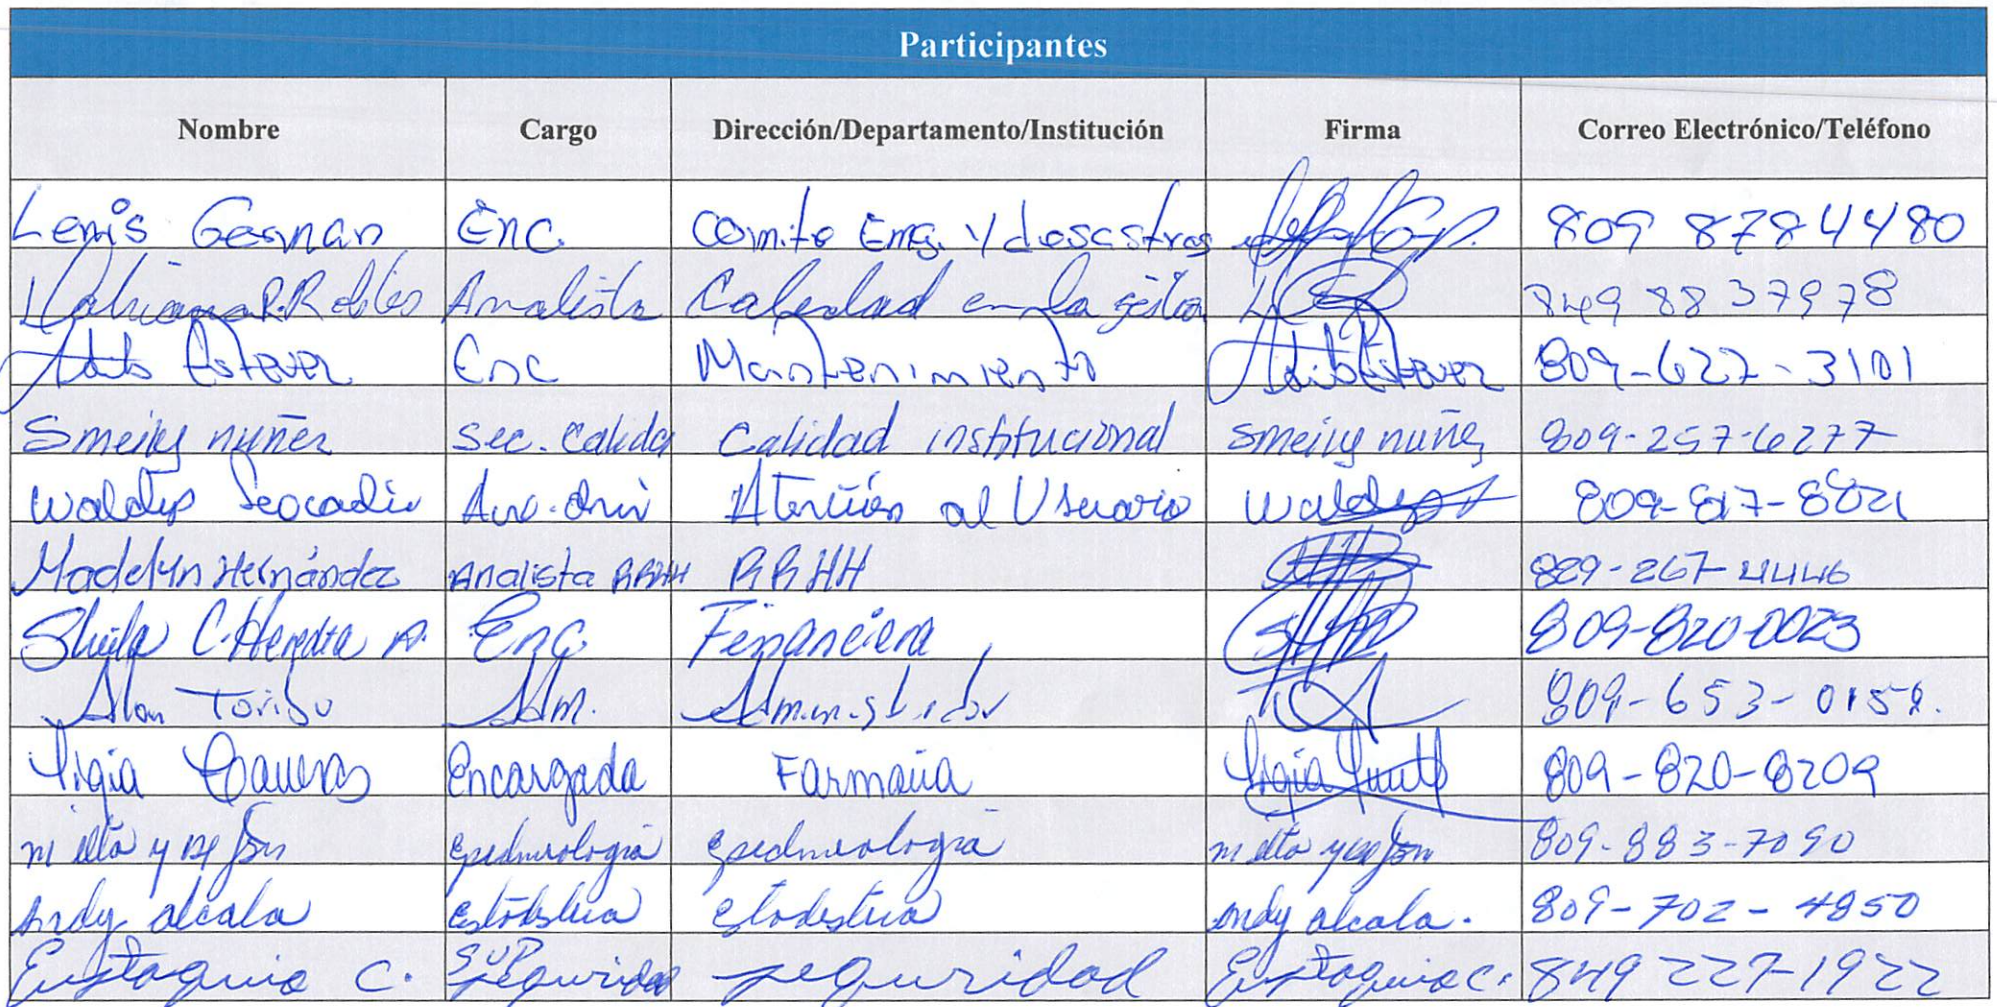 Participantes
Nombre Cargo Dirección/Departamento/Institución Firma Correo Electrónico/Teléfono
Lenis German Enc. Comite Emg. y desastres 809 878 4480
R. Robles Analista Calidad en la gestion 849 88 37978
Estevez Enc Mantenimiento 809-627-3101
Smeily nuñez Sec. Calida Calidad institucional Smeily nuñez 809-257-6277
Waldys Leocadio Atención al Usuario 809-817-8821
Madelyn Hernández Analista RRHH RRHH 829-267-4446
Sheila C. Heredia A. Enc. Financiera 809-820-0023
Alan Toribio Adm. Administrador 809-653-0158.
Ligia Encargada Farmacia Ligia 809-820-8209
Epidemiologia Epidemiologia 809-883-7090
Andy alcala Estadistica Estadistica Andy alcala. 809-702-4850
Eustaquio C. SUP seguridad seguridad Eustaquio C. 849 227-1922